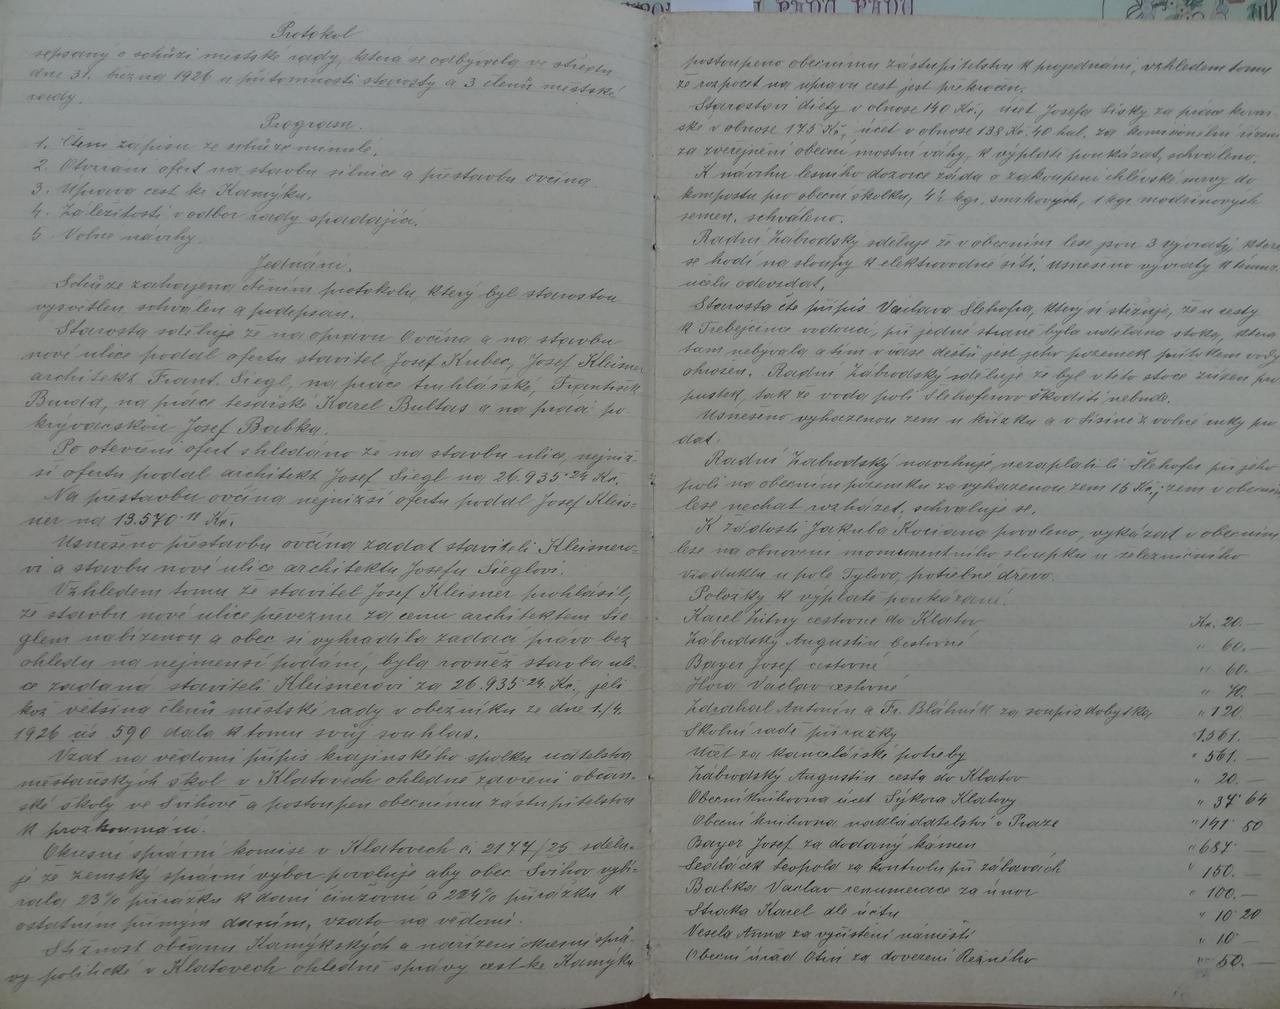 Protokol
sepsaný o schůzi městské rady, která se odbývala ve středu
dne 31. března 1926 u přítomnosti starosty a 3 členů městské
rady.
Program.
1. Čtení zápisu ze schůze minulé.
2. Otvírání ofert na stavbu silnice a přestavbu ovčína
3. Uprava cest ke Kamýku.
4. Záležitosti v odbor rady spadající.
5 Volné návrhy.
Jednání.
Schůze zahájena čtením protokolu, který byl starostou
vysvětlen, schválen a podepsán.
Starosta sděluje že na opravu Ovčína a na stavbu
nové ulice podal ofertu stavitel Josef Kubec, Josef Kleisner
architekt Frant. Siegl, na práce truhlářské, František
Burda, na práce tesařské Karel Bultas a na práci po-
krývačskou Josef Babka.
Po otevření ofert shledáno že na stavbu ulice, nejniž-
ší ofertu podal architekt Josef Siegl na 26.935·24 Kč.
Na přestavbu ovčína nejnižší ofertu podal Josef Kleis-
ner na 13.570·11 Kč.
Usnešeno přestavbu ovčína zadat staviteli Kleisnero-
vi a stavbu nové ulice architektu Josefu Sieglovi.
Vzhledem tomu že stavitel Josef Kleisner prohlásil,
že stavbu nové ulice převezme za cenu architektem Sie-
glem nabízenou a obec si vyhradila zadací právo bez
ohledu na nejmenší podání, byla rovněž stavba uli-
ce zadaná staviteli Kleisnerovi za 26.935·24 Kč., jeli
kož většina členů městské rady v oběžníku ze dne 1./4.
1926 čís 590 dala k tomu svůj souhlas.
Vzat na vědomí přípis krajinského spolku učitelstva
měšťanských škol v Klatovech ohledně zavření občan-
ské školy ve Švihově a postoupen obecnímu zastupitelstvu
k prozkoumání.
Okresní správní komise v Klatovech č. 2177/25 sdělu-
je že zemský správní výbor povoluje aby obec Švihov vybí-
rala 23% přirážku k dani činžovní a 224% přirážku k
ostatním přímým daním, vzato na vědomí.
Stížnost občanů Kamýkských a nařízení okresní sprá-
vy politické v Klatovech ohledně správy cest ke Kamýku
postoupeno obecnímu zastupitelstvu k projednání, vzhledem tomu
že rozpočet na úpravu cest jest překročen.
Starostovi diety v obnose 140 Kč., účet Josefa Lišky za práce kovář-
ské v obnose 175 Kč., účet v obnose 138 Kč. 40 hal. za komisionelní řízení
za zveřejnění obecní mostní váhy, k výplatě poukázat, schváleno.
K návrhu lesního dozorce žádá o zakoupení chlévské mrvy do
kompostu pro obecní školku, 4½ kgr. smrkových, 1 kgr. modřínových
semen, schváleno.
Radní Zábrodský sděluje že v obecním lese jsou 3 vývraty, které
se hodí na sloupy k elektrovodné síti. Usnešeno vývraty k tomuto
účelu odevzdat.
Starosta čte přípis Václava Šlehofra, který si stěžuje, že u cesty
k Třebejčince vedoucí, při jedné straně byla udělána stoka, která
tam nebývala a tím v čase dešťů jest jeho pozemek přítokem vody
ohrožen. Radní Zábrodský sděluje že byl v této stoce zúžen pro
pustek, tak že voda poli Šlehoferovo škoditi nebude.
Usnešeno vyházenou zem u křížku a v Lisině z volné ruky pro
dat.
Radní Zábrodský navrhuje, nezaplatí-li Šlehofer při jeho
poli na obecním pozemku za vyházenou zem 15 Kč., zem v obecním
lese nechat rozházet, schvaluje se.
K žádosti Jakuba Kociana povoleno, vykázat v obecním
lese na obnovení monumentního sloupku u železničního
viaduktu u pole Tylovo, potřebné dřevo.
Položky k výplatě poukázané.
Karel Žitný cestovné do Klatov Kč. 20.—
Zábrodský Augustin Cestovné " 60.—
Bayer Josef cestovné " 60.—
Hora Václav cestovné " 70.—
Zdrahal Antonín a Fr. Bláhník za soupis dobytka " 120.—
Školní radě přirážky " 1.561.—
Účet za kancelářské potřeby " 561.—
Zábrodský Augustin cesta do Klatov " 20.—
Obecní knihovna účet Sýkora Klatovy " 37·64
Obecní knihovna nakladatelství v Praze " 141·80
Bayer Josef za dodaný kámen " 687.—
Sedláček Leopold za kontrolu při zábavách " 150.—
Babka Václav renumerace za únor " 100.—
Straka Karel dle účtu " 10·20
Veselá Anna za vyčistění náměstí " 10.—
Obecní úřad Otín za dovezení Řezného " 50.—